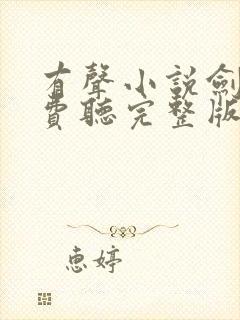 有聲小說劍
費聽完整版
惠婷